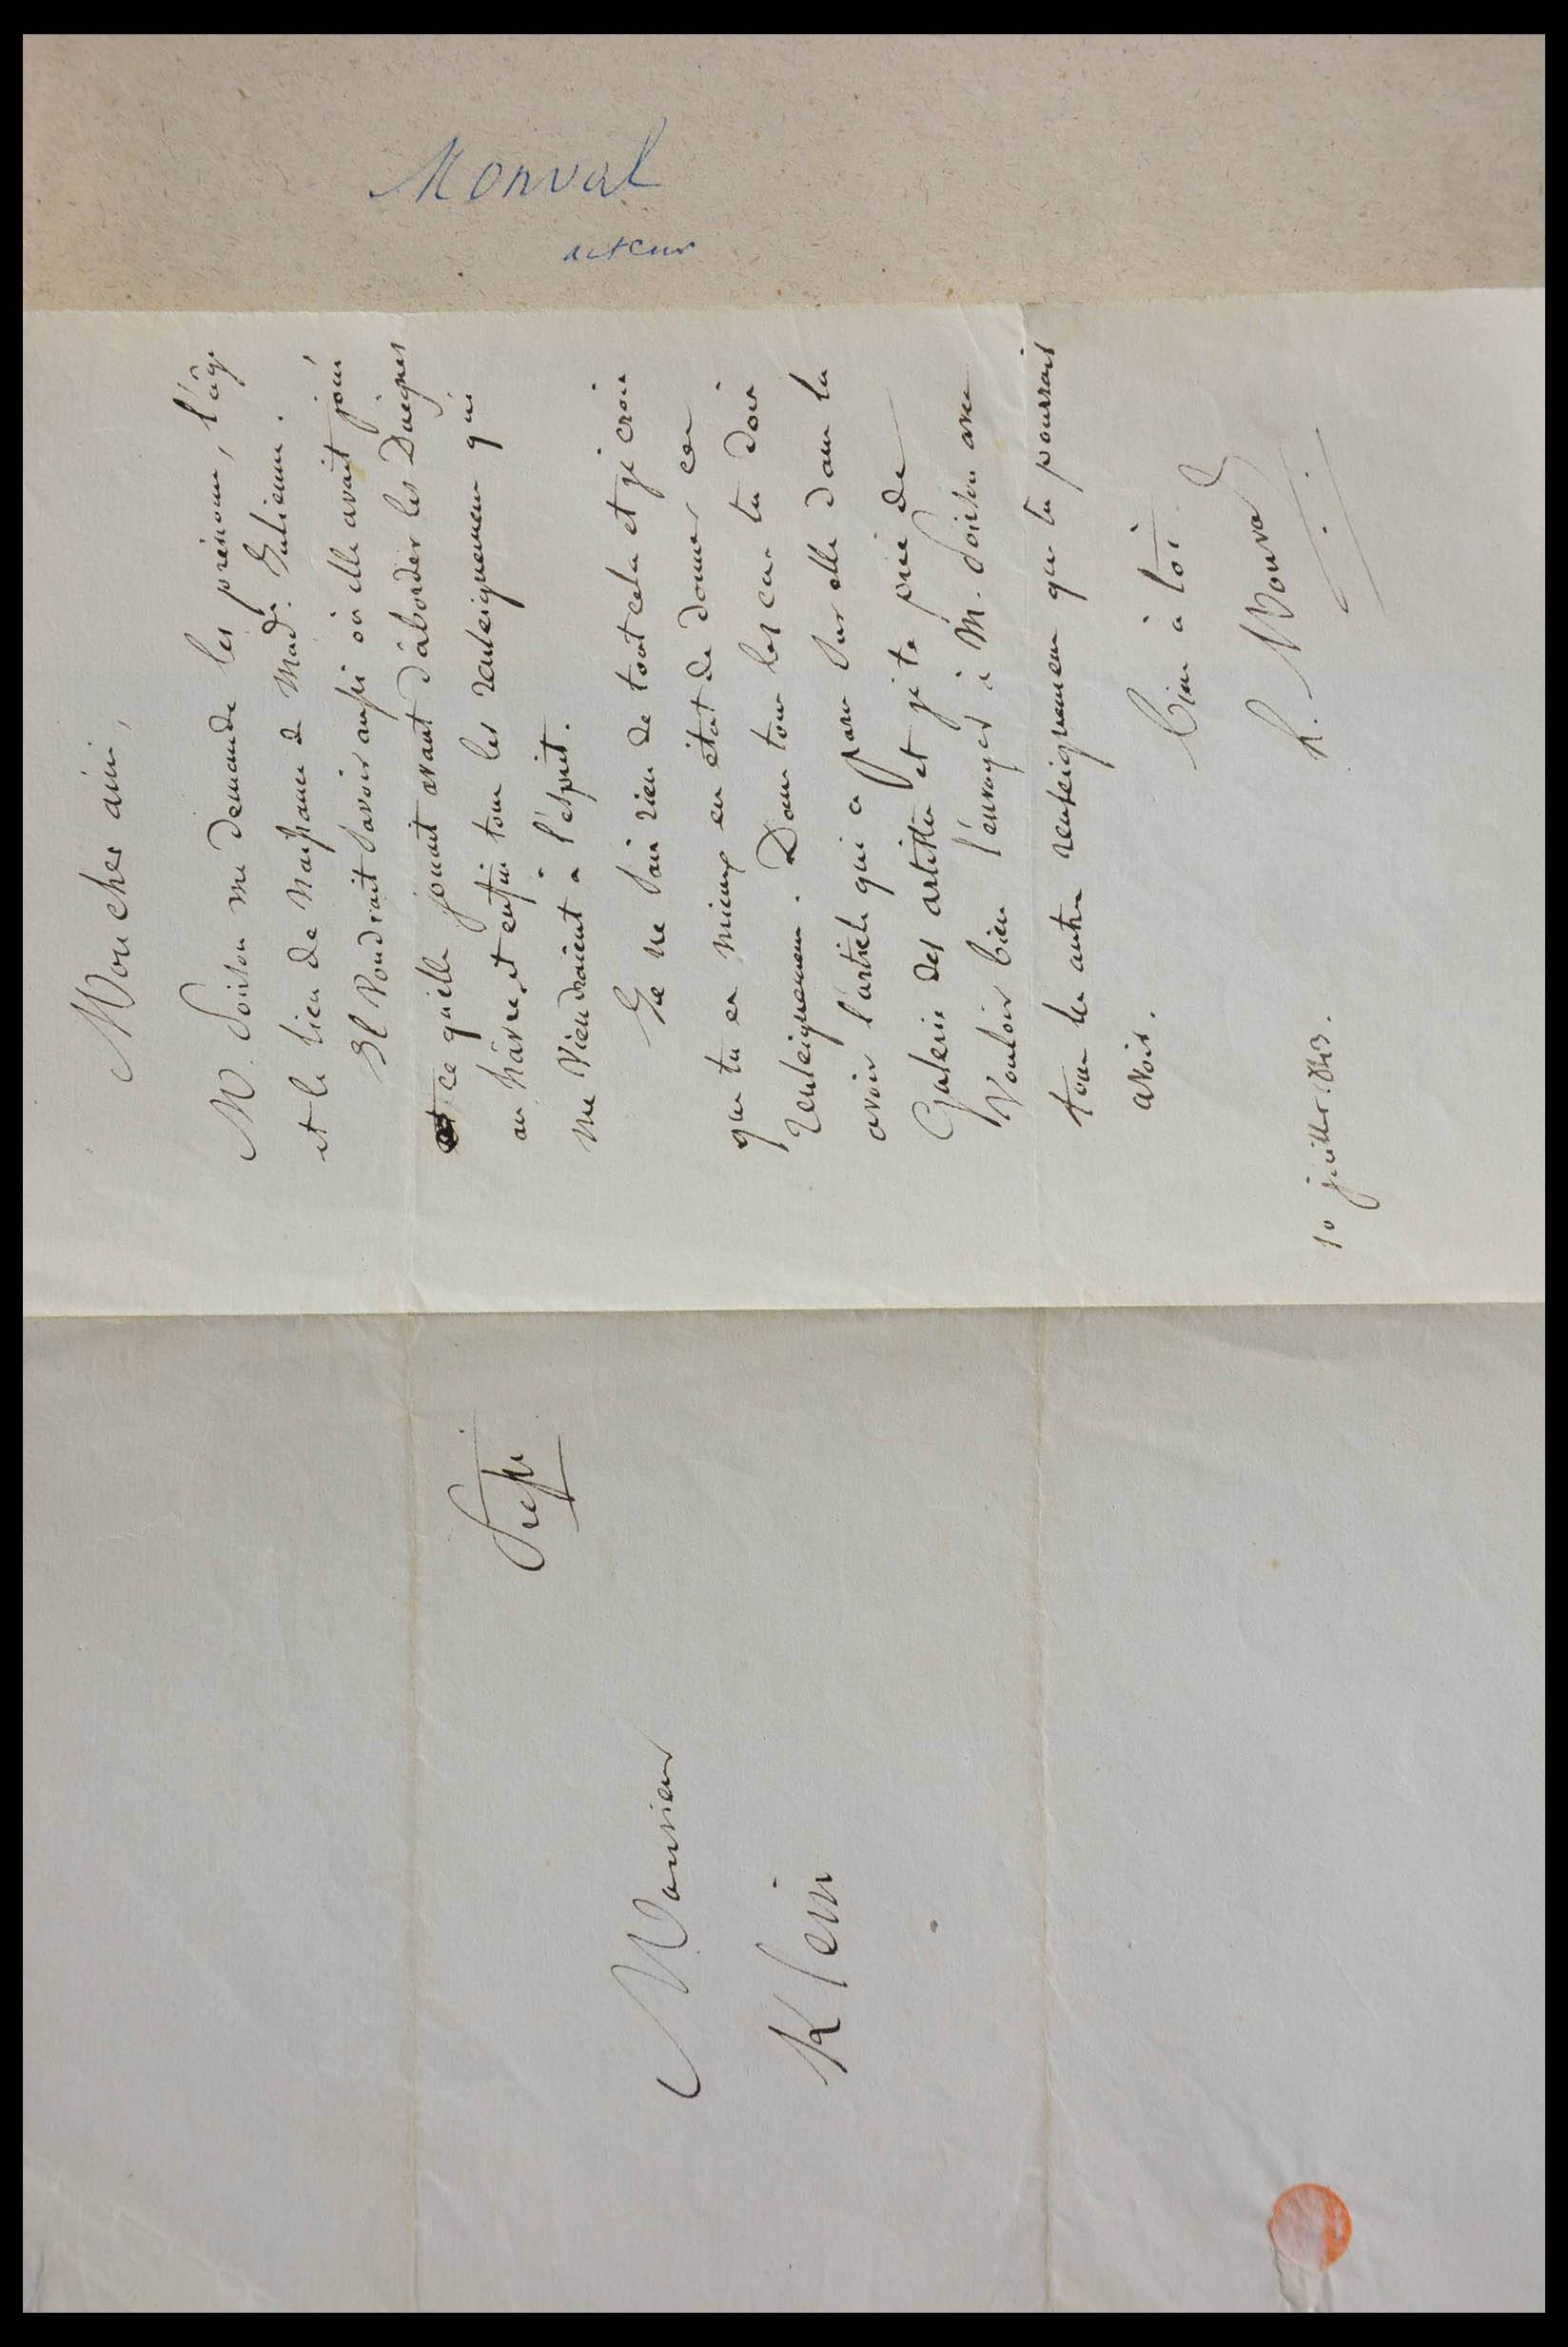 Monval
acteur
Mon cher ami,
M. Soiron me demande les prénoms, l'âge
et le lieu de naissance de Made. Julienne.
Il voudrait savoir aussi où elle avait joué
et ce qu'elle jouait avant d'aborder les Duègnes
au hâvre, et enfin tous les renseignemens qui
me viendraient à l'esprit.
Je ne sais rien de tout cela et je crois
que tu es mieux en état de donner ces
renseignemens. Dans tous les cas tu dois
avoir l'article qui a paru sur elle dans la
Galerie des artistes et je te prie de
vouloir bien l'envoyer à M. Soiron avec
tous les autres renseignemens que tu pourrais
avoir.
Bien à toi
h. Monval
10 juillet
Pressé
Monsieur
Klein